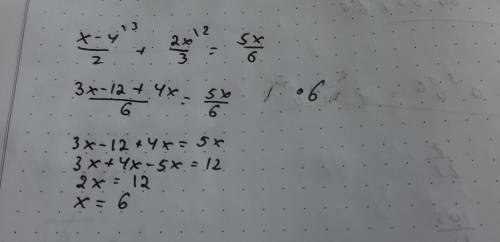 x-4\3/2 + 2x\2/3 = 5x/6
3x-12+4x/6 = 5x/6 | •6
3x-12+4x = 5x
3x+4x-5x = 12
2x = 12
x = 6